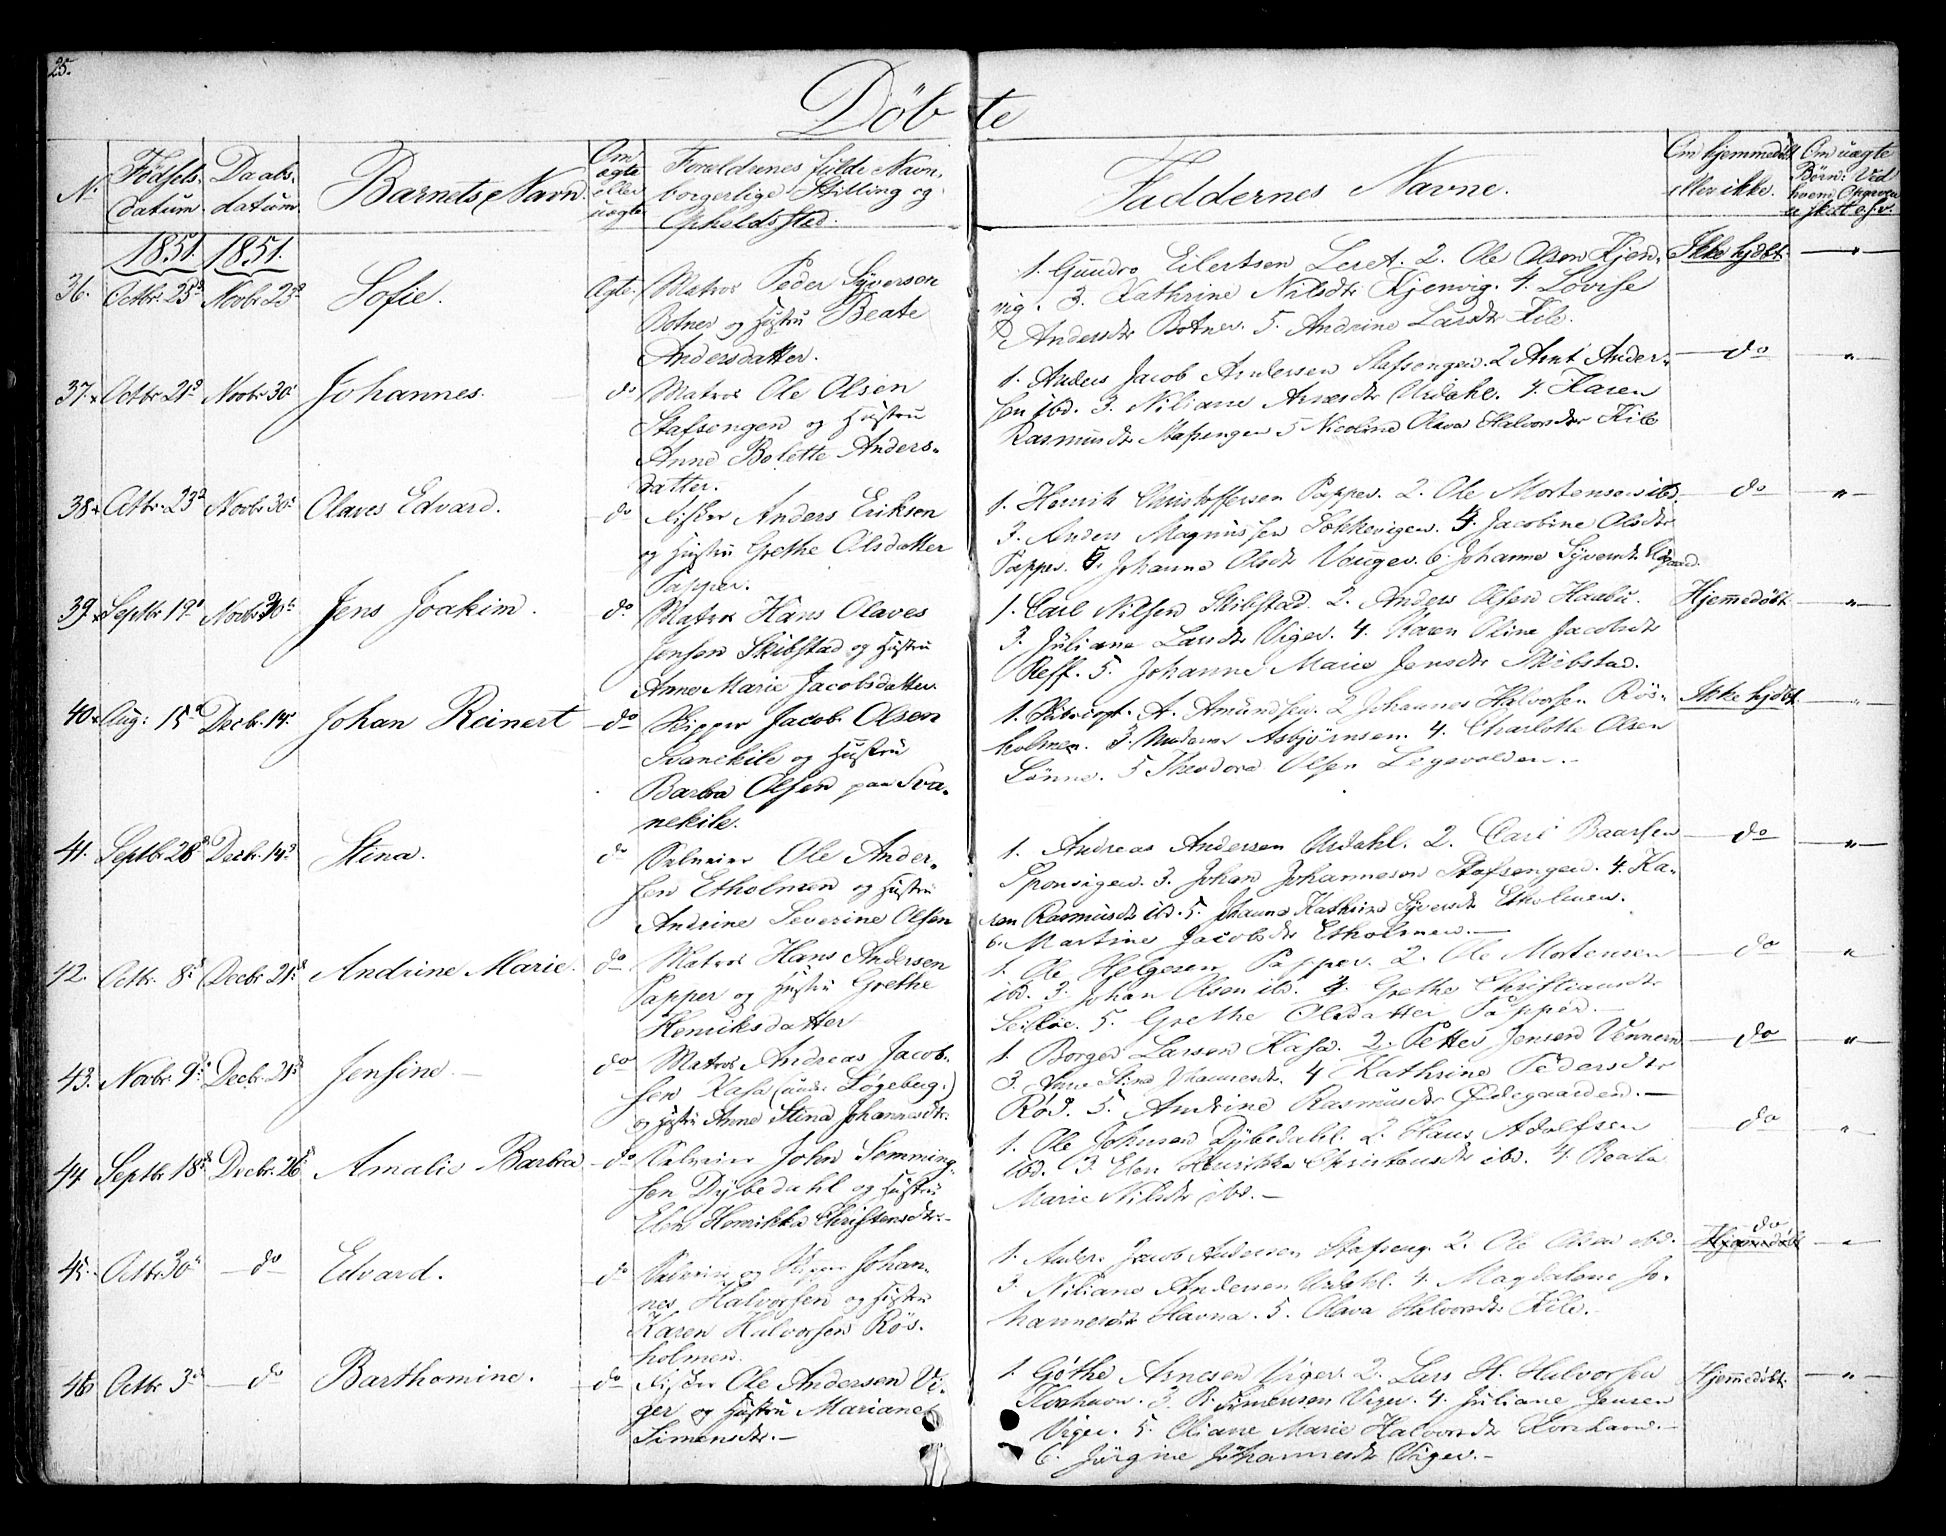 25.
Döbte
No
Födsels-
datum.
Daabs-
datum.
Barnets Navn.
Om
ægte
eller
uægte
Forældrenes fulde Navn,
borgerlige Stilling og
Opholdssted.
Faddernes Navne.
Om hjemmedöbt
eller ikke.
Om uægte
Börn: Ved
hvem Opgaven
er skett o.s.v.
1851. 1851.
36. Octbr. 25d Novbr. 23d Sofie. Ægte. Matros Peder Syversen
Botner og Hustru Beate
Andersdatter.
1. Gundro Eilertsen Leret. 2. Ole Olsen Kjen-
vig. 3. Kathrine Nilsdtr Kjenvig. 4. Lovise
Andersdtr Botner. 5. Andrine Larsdtr Kile.
Ikke hjdbt. — " —
37. Octbr. 21d Novbr. 30 Johannes. do Matros Ole Olsen
Stafsengen og Hustru
Anne Bolette Anders-
datter.
1. Anders Jacob Andersen Stafsengen. 2 Arnt Ander-
sen ibd. 3. Niliane Arnesdtr Urdahl. 4. Karen
Rasmusdtr Stafsengen 5 Nicoline Olava Halvorsdtr Kile
do "
38. Octbr. 23d Novbr. 30 Olaves Edvard. do Fisker Anders Eriksen
og Hustru Grethe Olsdatter
Papper.
1. Henrik Christoffersen Papper. 2. Ole Mortensen ibd.
3. Anders Magnussen Sokkevigen. 4. Jacobine Olsdtr
Papper. 5. Johanne Olsdtr Vauger. 6. Johanne Syversdtr
do "
39. Septbr. 19d Novbr. 30 Jens Joakim. do Matros Hans Olaves
Jensen Skibstad og Hustru
Anne Marie Jacobsdatter.
1. Carl Nilsen Skibstad. 2. Anders Olsen Hasbu.
3. Juliane Larsdtr Viger. 4. Karen Oline Jacobsdtr
Reff. 5. Johanne Marie Jensdtr Skibstad.
Hjemmedöbt "
40. Aug: 15d Decbr. 14d Johan Reinert do Skipper Jacob Olsen
Svanekile og Hustru
Barbra Olsen paa Sva-
nekile.
1. A. Amundsen. 2 Johannes Halvorsen Rös-
holmen. 3. Madame Asbjörnsen. 4. Charlotte Olsen
Lönne. 5 Theodora Olsen Lögevolden.
Ikke hjdbt "
41. Septbr. 28d Decbr. 14d Stina. do Selveier Ole Ander-
sen Etholmen og Hustru
Andrine Severine Olsen
1. Andreas Andersen Urdahl. 2. Carl Baarsen
Sponvigen. 3. Johan Johannesen Stafsengen. 4. Ka-
ren Rasmusdtr ibd. 5. Johanne Kathrine Syversdtr Etholmen.
6. Martine Jacobsdtr Etholmen.
do "
42. Octbr. 8d Decbr. 21d Andrine Marie. do Matros Hans Andersen
Papper og Hustru Grethe
Henriksdatter
1. Ole Helgesen Papper. 2. Ole Mortensen
ibd. 3. Johan Olsen ibd. 4. Grethe Christiansdtr
5. Grethe Olsdatter Papper.
do "
43. Novbr. 9d Decbr. 21d Jensine. do Matros Andreas Jacob-
sen Kasa (under Lögeberg)
og Hustru Anne Stina Johannesdtr.
1. Borger Larsen Kasa. 2. Petter Jensen Vennern
3. Anne Stina Johannesdtr. 4 Kathrine Pedersdtr
Röd. 5. Andrine Rasmusdtr Ödegaarden.
do "
44. Septbr. 18d Decbr. 26d Amalie Barbra do Selveier John Semming-
sen Dybedahl og Hustru
Elen Henrikka Christensdtr.
1. Ole Johnsen Dybedahl. 2. Hans Adolfsen
ibd. 3. Elen Henrikka Christensdtr ibd. 4. Beata
Marie Nilsdtr ibd.
do "
45. Octbr. 30d do Edvard. do Selveier og Skipper Johan-
nes Halvorsen og Hustru
Karen Halvorsen Rös-
holmen.
1. Anders Jacob Andersen Stafseng. 2. Ole Olsen ibd.
3. Niliane Andersen Urdahl. 4. Magdalene Jo-
hannesdtr Havna. 5. Olava Halvorsdtr Kile.
do
Hjemmedöbt "
46 Octbr. 3d do Barthomine. do Fisker Ole Andersen Vi-
ger og Hustru Mariane
Simensdtr.
1. Göthe Arnesen Viger. 2. Lars H. Halvorsen
Korshavn. 3. B. Simensen Viger. 4. Juliane Jensen
Viger. 5. Oliane Marie Halvorsdtr Korshavn.
6. Jörgine Johannesdtr Viger.
Hjemmedöbt. "